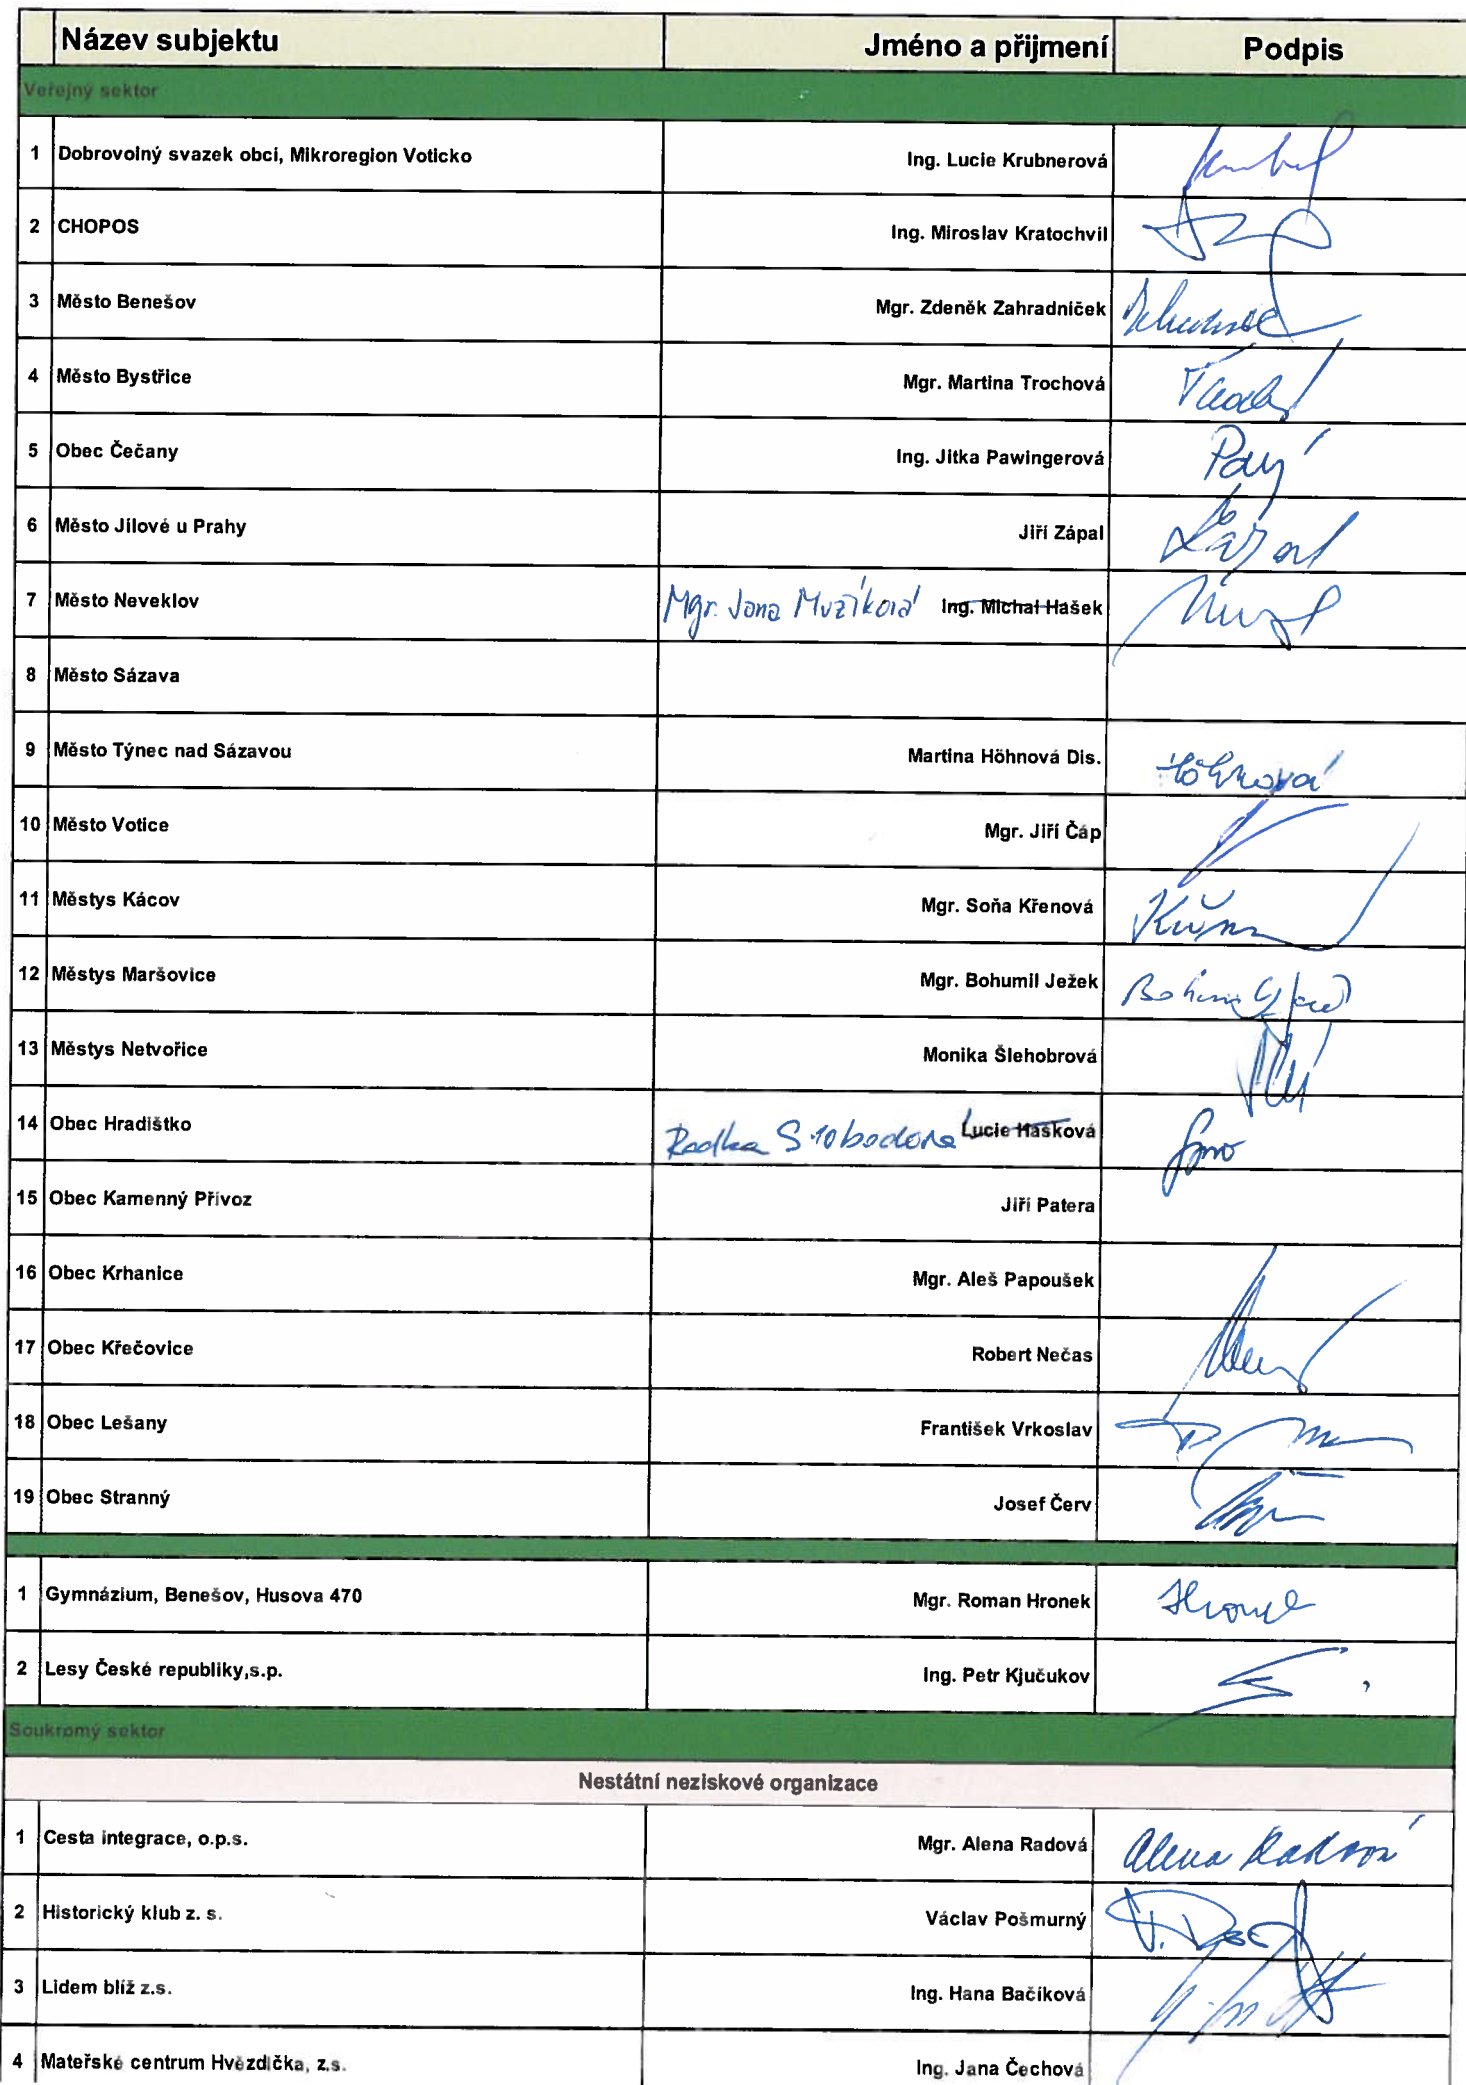 Název subjektu Jméno a přijmení Podpis
Veřejný sektor
1 Dobrovolný svazek obcí, Mikroregion Voticko Ing. Lucie Krubnerová
2 CHOPOS Ing. Miroslav Kratochvíl
3 Město Benešov Mgr. Zdeněk Zahradníček
4 Město Bystřice Mgr. Martina Trochová
5 Obec Čečany Ing. Jitka Pawingerová
6 Město Jílové u Prahy Jiří Zápal
7 Město Neveklov Mgr. Jana Muzíková Ing. Michal Hašek
8 Město Sázava
9 Město Týnec nad Sázavou Martina Höhnová Dis. Höhnová
10 Město Votice Mgr. Jiří Čáp
11 Městys Kácov Mgr. Soňa Křenová
12 Městys Maršovice Mgr. Bohumil Ježek
13 Městys Netvořice Monika Šlehobrová
14 Obec Hradištko Radka Svobodova Lucie Hašková
15 Obec Kamenný Přívoz Jiří Patera
16 Obec Krhanice Mgr. Aleš Papoušek
17 Obec Křečovice Robert Nečas
18 Obec Lešany František Vrkoslav
19 Obec Stranný Josef Červ
1 Gymnázium, Benešov, Husova 470 Mgr. Roman Hronek
2 Lesy České republiky,s.p. Ing. Petr Kjučukov
Soukromý sektor
Nestátní neziskové organizace
1 Cesta integrace, o.p.s. Mgr. Alena Radová Alena Radová
2 Historický klub z. s. Václav Pošmurný
3 Lidem blíž z.s. Ing. Hana Bačíková
4 Mateřské centrum Hvězdička, z.s. Ing. Jana Čechová